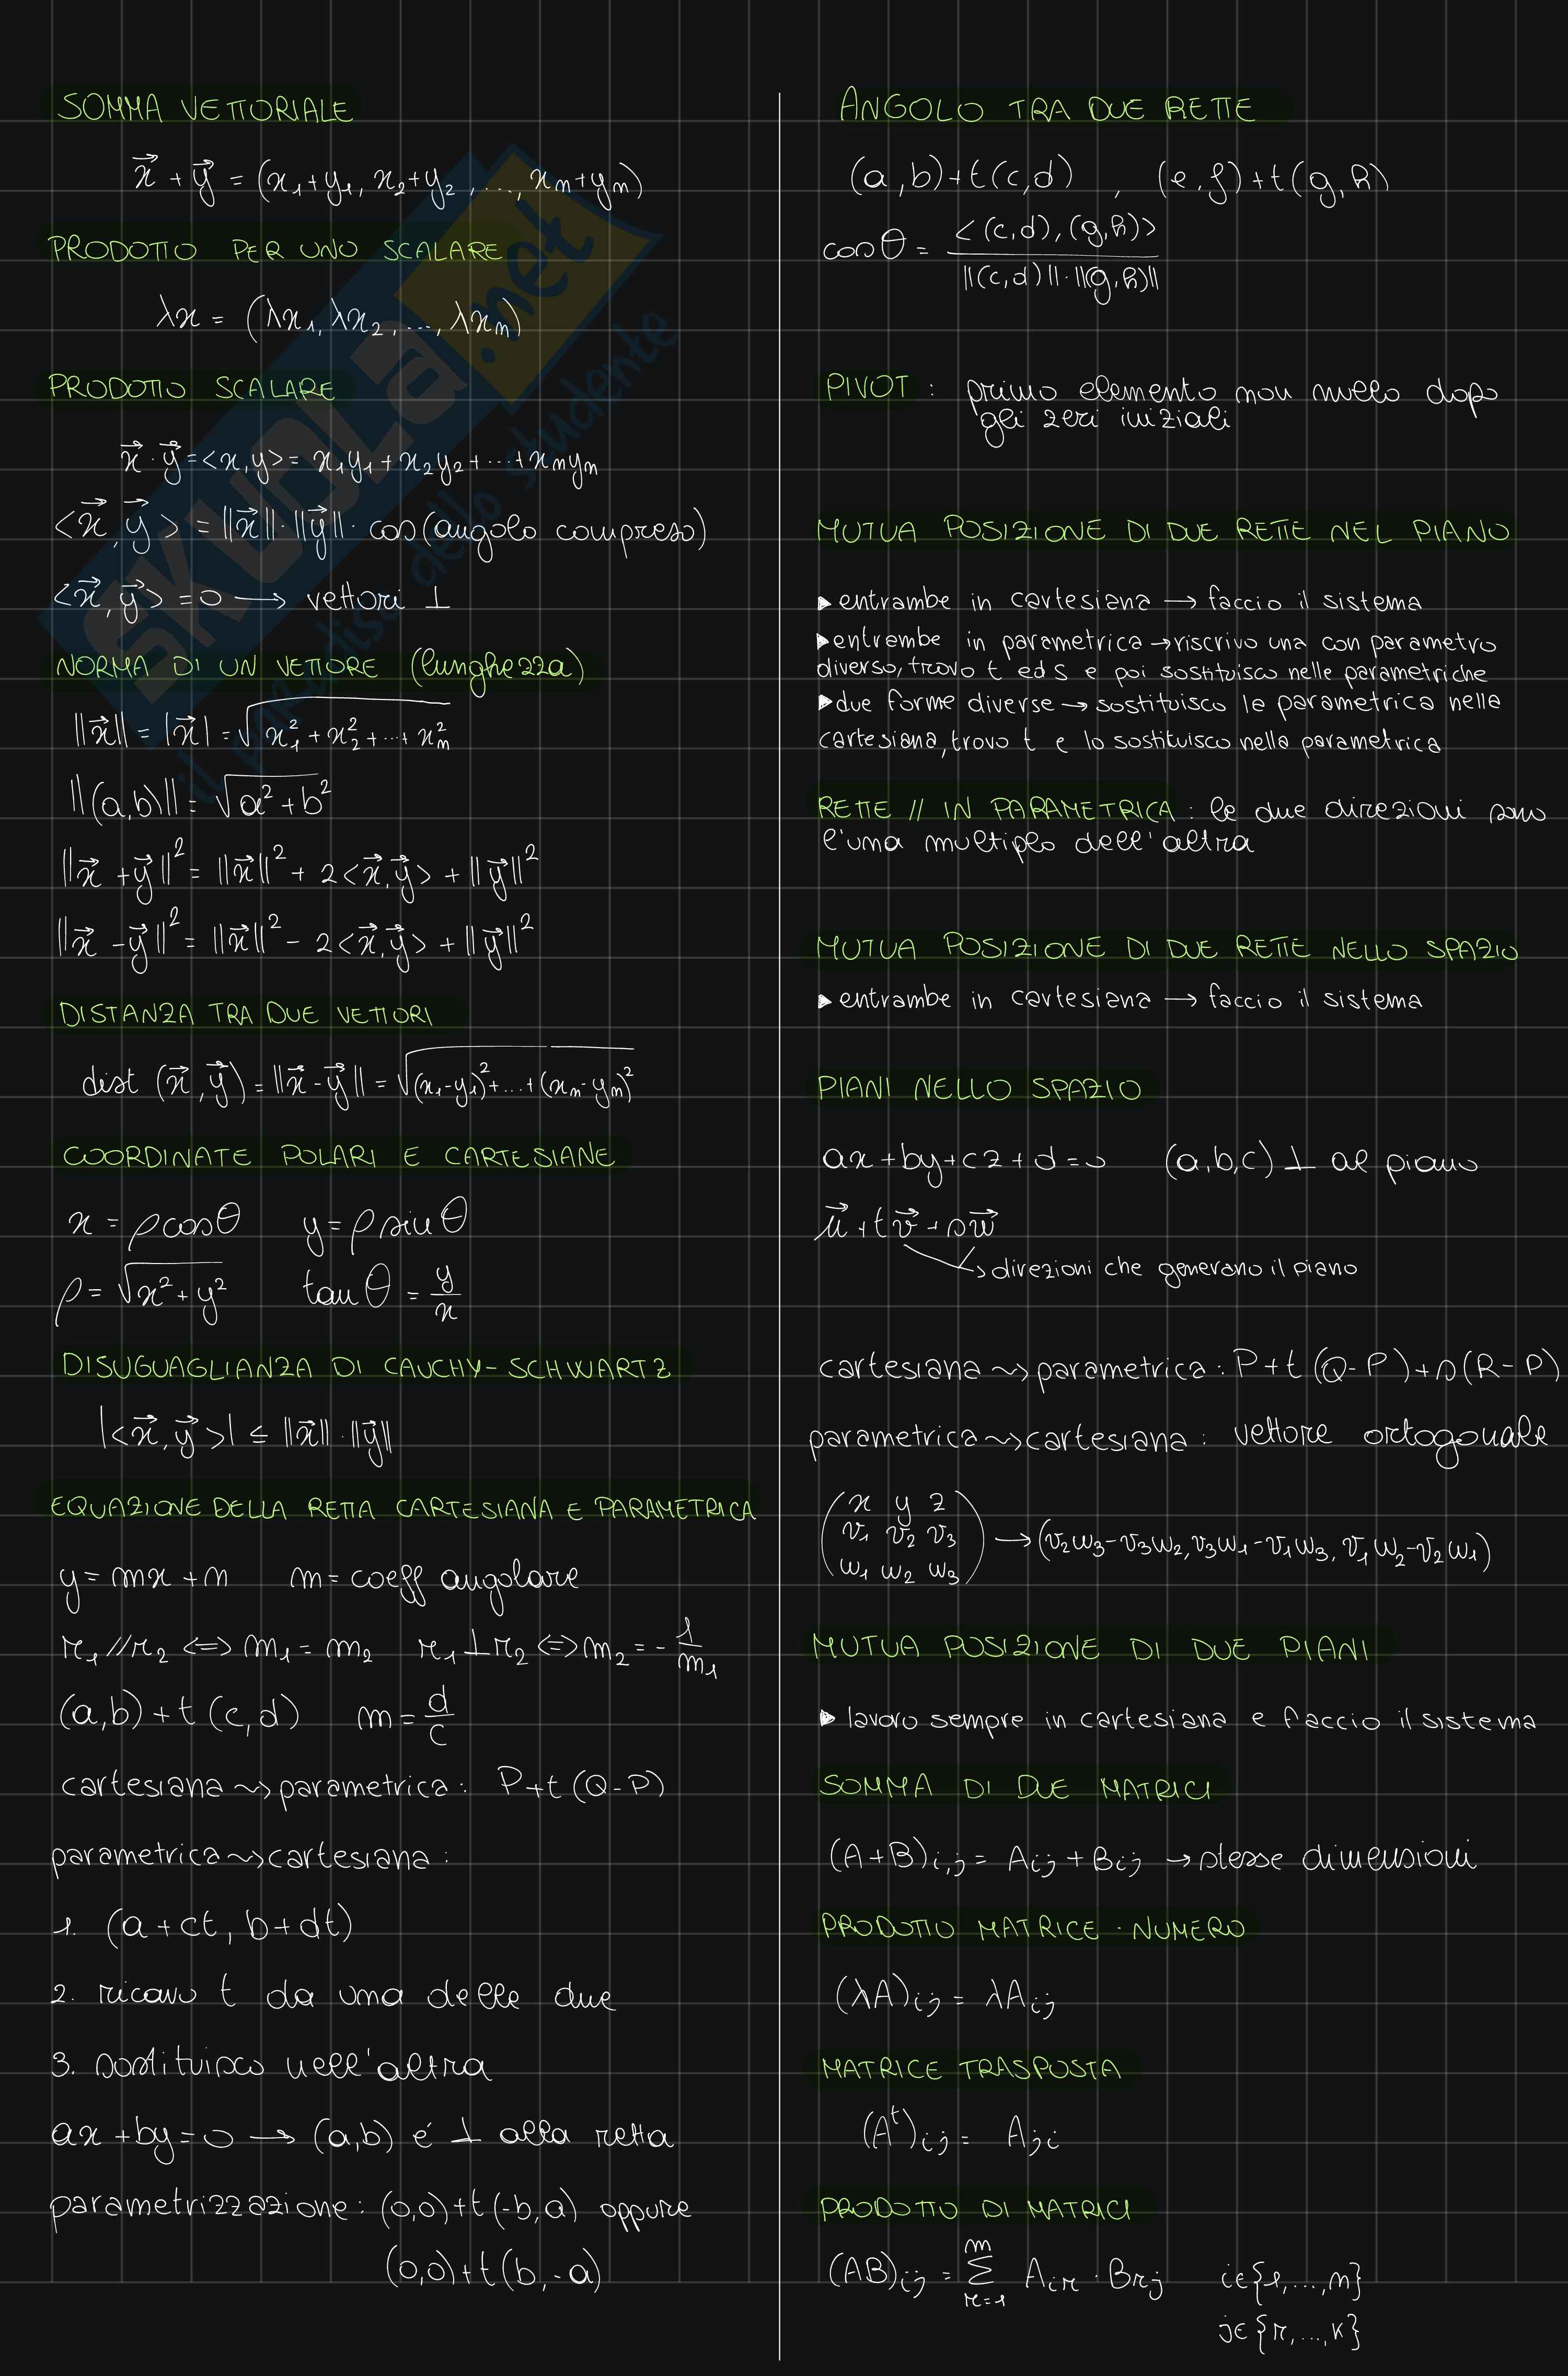 SOMMA VETTORIALE
x⃗ + y⃗ = (x₁+y₁, x₂+y₂, ..., xₙ+yₙ)
PRODOTTO PER UNO SCALARE
λx = (λx₁, λx₂, ..., λxₙ)
PRODOTTO SCALARE
x⃗ · y⃗ = <x,y> = x₁y₁ + x₂y₂ + ... + xₙyₙ
<x⃗,y⃗> = ||x⃗|| · ||y⃗|| · cos(angolo compreso)
<x⃗,y⃗> = 0 → vettori ⊥
NORMA DI UN VETTORE (lunghezza)
||x⃗|| = |x⃗| = √(x₁² + x₂² + ... + xₙ²)
||(a,b)|| = √(a² + b²)
||x⃗ + y⃗||² = ||x⃗||² + 2<x⃗,y⃗> + ||y⃗||²
||x⃗ - y⃗||² = ||x⃗||² - 2<x⃗,y⃗> + ||y⃗||²
DISTANZA TRA DUE VETTORI
dist (x⃗,y⃗) = ||x⃗ - y⃗|| = √((x₁-y₁)² + ... + (xₙ-yₙ)²)
COORDINATE POLARI E CARTESIANE
x = ρcosθ y = ρsinθ
ρ = √(x² + y²) tanθ = y/x
DISUGUAGLIANZA DI CAUCHY-SCHWARTZ
|<x⃗,y⃗>| ≤ ||x⃗|| · ||y⃗||
EQUAZIONE DELLA RETTA CARTESIANA E PARAMETRICA
y = mx + n m = coeff angolare
r₁ // r₂ <=> m₁ = m₂ r₁ ⊥ r₂ <=> m₂ = -1/m₁
(a,b) + t(c,d) m = d/c
cartesiana ⤳ parametrica: P+t(Q-P)
parametrica ⤳ cartesiana:
1. (a+ct, b+dt)
2. ricavo t da una delle due
3. sostituisco nell'altra
ax + by = 0 → (a,b) é ⊥ alla retta
parametrizzazione: (0,0)+t(-b,a) oppure
(0,0)+t(b,-a)
ANGOLO TRA DUE RETTE
(a,b)+t(c,d) , (e,f)+t(g,h)
cosθ = <(c,d),(g,h)> / ||(c,d)||·||(g,h)||
PIVOT : primo elemento non nullo dopo
gli zeri iniziali
MUTUA POSIZIONE DI DUE RETTE NEL PIANO
▸ entrambe in cartesiana → faccio il sistema
▸ entrambe in parametrica → riscrivo una con parametro
diverso, trovo t ed s e poi sostituisco nelle parametriche
▸ due forme diverse → sostituisco la parametrica nella
cartesiana, trovo t e lo sostituisco nella parametrica
RETTE // IN PARAMETRICA : le due direzioni sono
l'una multiplo dell'altra
MUTUA POSIZIONE DI DUE RETTE NELLO SPAZIO
▸ entrambe in cartesiana → faccio il sistema
PIANI NELLO SPAZIO
ax+by+cz+d=0 (a,b,c) ⊥ al piano
u⃗ + tv⃗ + sw⃗
↳ direzioni che generano il piano
cartesiana ⤳ parametrica: P+t(Q-P)+s(R-P)
parametrica ⤳ cartesiana: vettore ortogonale
x y z
v₁ v₂ v₃ → (v₂w₃-v₃w₂, v₃w₁-v₁w₃, v₁w₂-v₂w₁)
w₁ w₂ w₃
MUTUA POSIZIONE DI DUE PIANI
▸ lavoro sempre in cartesiana e faccio il sistema
SOMMA DI DUE MATRICI
(A+B)i,j = Aij + Bij → stesse dimensioni
PRODOTTO MATRICE · NUMERO
(λA)ij = λAij
MATRICE TRASPOSTA
(Aᵗ)ij = Aji
PRODOTTO DI MATRICI
m
(AB)ij = Σ Air · Brj i∈{1,...,n}
r=1
j∈{r,...,k}
SKUOLA.net
il paradiso dello studente